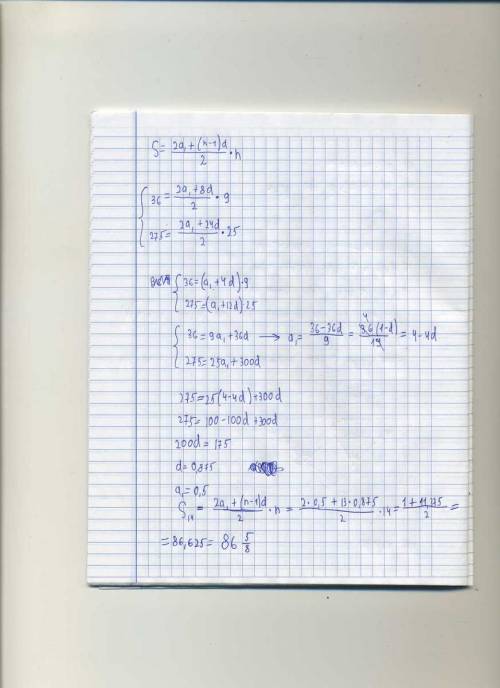 S = (2a₁+(n-1)d)/2 · n
{ 36 = (2a₁+8d)/2 · 9
{ 275 = (2a₁+24d)/2 · 25
{ 36 = (a₁+4d)·9
{ 275 = (a₁+12d)·25
{ 36 = 9a₁+36d → a₁ = (36-36d)/9 = 36(1-d)/ = 4-4d
{ 275 = 25a₁+300d
275 = 25(4-4d)+300d
275 = 100-100d+300d
200d = 175
d = 0,875
a₁ = 0,5
S₁₄ = (2a₁+(n-1)d)/2 · n = (2·0,5+13·0,875)/2 · 14 = (1+11,375)/2 =
= 86,625 = 86 5/8